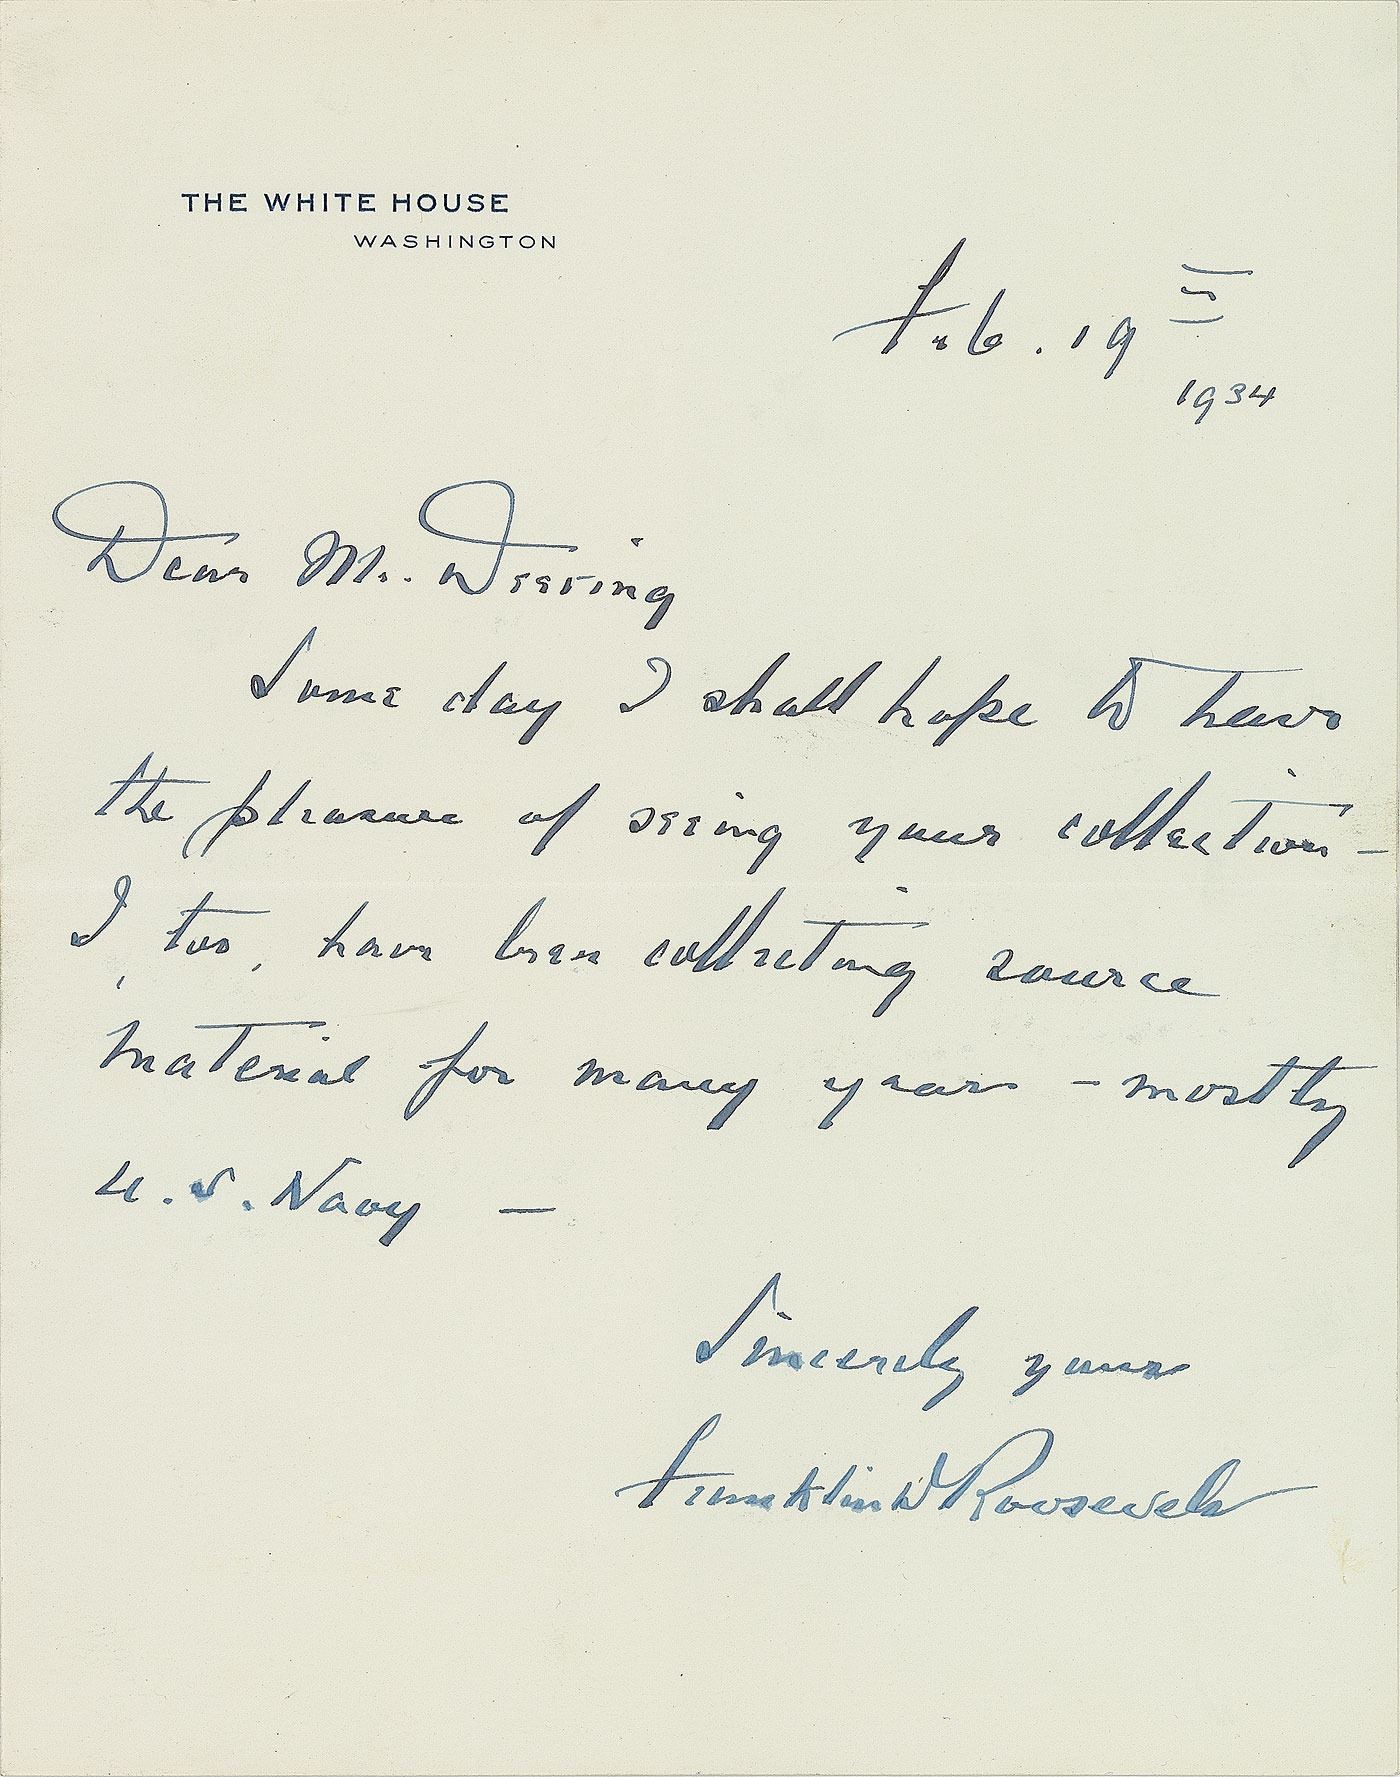 THE WHITE HOUSE
WASHINGTON
Feb. 19th
1934
Dear Mr. Deering
Some day I shall hope to have
the pleasure of seeing your collection –
I, too, have been collecting source
material for many years – mostly
U.S. Navy –
Sincerely yours
Franklin D Roosevelt